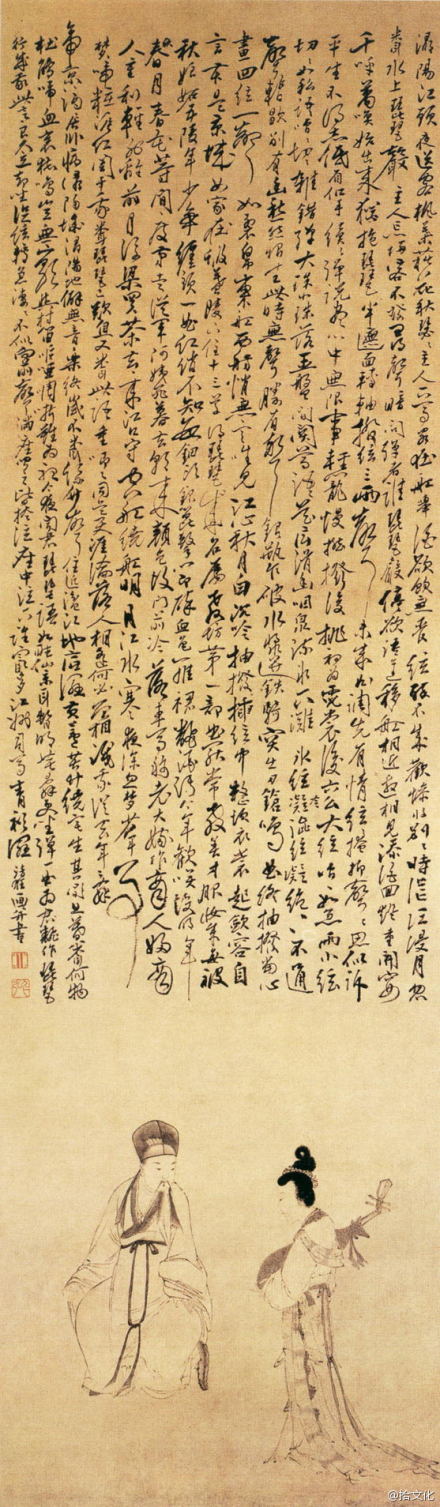 潯陽江頭夜送客楓葉荻花秋瑟瑟主人下馬客在船舉酒欲飲無管絃醉不成歡慘將別別時茫茫江浸月忽
聞水上琵琶聲主人忘歸客不發尋聲暗問彈者誰琵琶聲停欲語遲移船相近邀相見添酒回燈重開宴
千呼萬喚始出來猶抱琵琶半遮面轉軸撥絃三兩聲未成曲調先有情絃絃掩抑聲聲思似訴
平生不得志低眉信手續續彈說盡心中無限事輕攏慢撚撥復挑初為霓裳後六么大絃嘈嘈如急雨小絃
切切如私語嘈嘈切切錯雜彈大珠小珠落玉盤間關鶯語花底滑幽咽泉流水下灘水泉冷澀絃凝絕凝絕不通
聲暫歇別有幽愁暗恨生此時無聲勝有聲銀瓶乍破水漿迸鐵騎突出刀鎗鳴曲終抽撥當心
畫四絃一聲如裂帛東船西舫悄無言唯見江心秋月白沉吟抽撥插絃中整頓衣裳起斂容自
言本是京城女家在蝦蟆陵下住十三學得琵琶成名屬教坊第一部曲罷常教善才服妝成每被
秋娘妒五陵年少爭纏頭一曲紅綃不知數鈿頭銀篦擊節碎血色羅裙翻酒污今年歡笑復明年
春月春花等閒度弟走從軍阿姨死暮去朝來顏色故門前冷落車馬稀老大嫁作商人婦商
人重利輕別離前月浮梁買茶去去來江口守空船繞船明月江水寒夜深忽夢少年事
夢啼粧淚紅闌干我聞琵琶已歎息又聞此語重唧唧同是天涯淪落人相逢何必曾相識我從去年辭
帝京謫居臥病潯陽城潯陽地僻無音樂終歲不聞絲竹聲住近湓江地低濕黃蘆苦竹繞宅生其間旦暮聞何物
杜鵑啼血哀猿鳴豈無山歌與村笛嘔啞嘲哳難為聽今夜聞君琵琶語如聽仙樂耳暫明莫辭更坐彈一曲為君翻作琵琶
行感我此言良久立却坐促絃絃轉急淒淒不似向前聲滿座聞之皆掩泣座中泣下誰最多江州司馬青衫濕 清狂畫并書
@拾文化